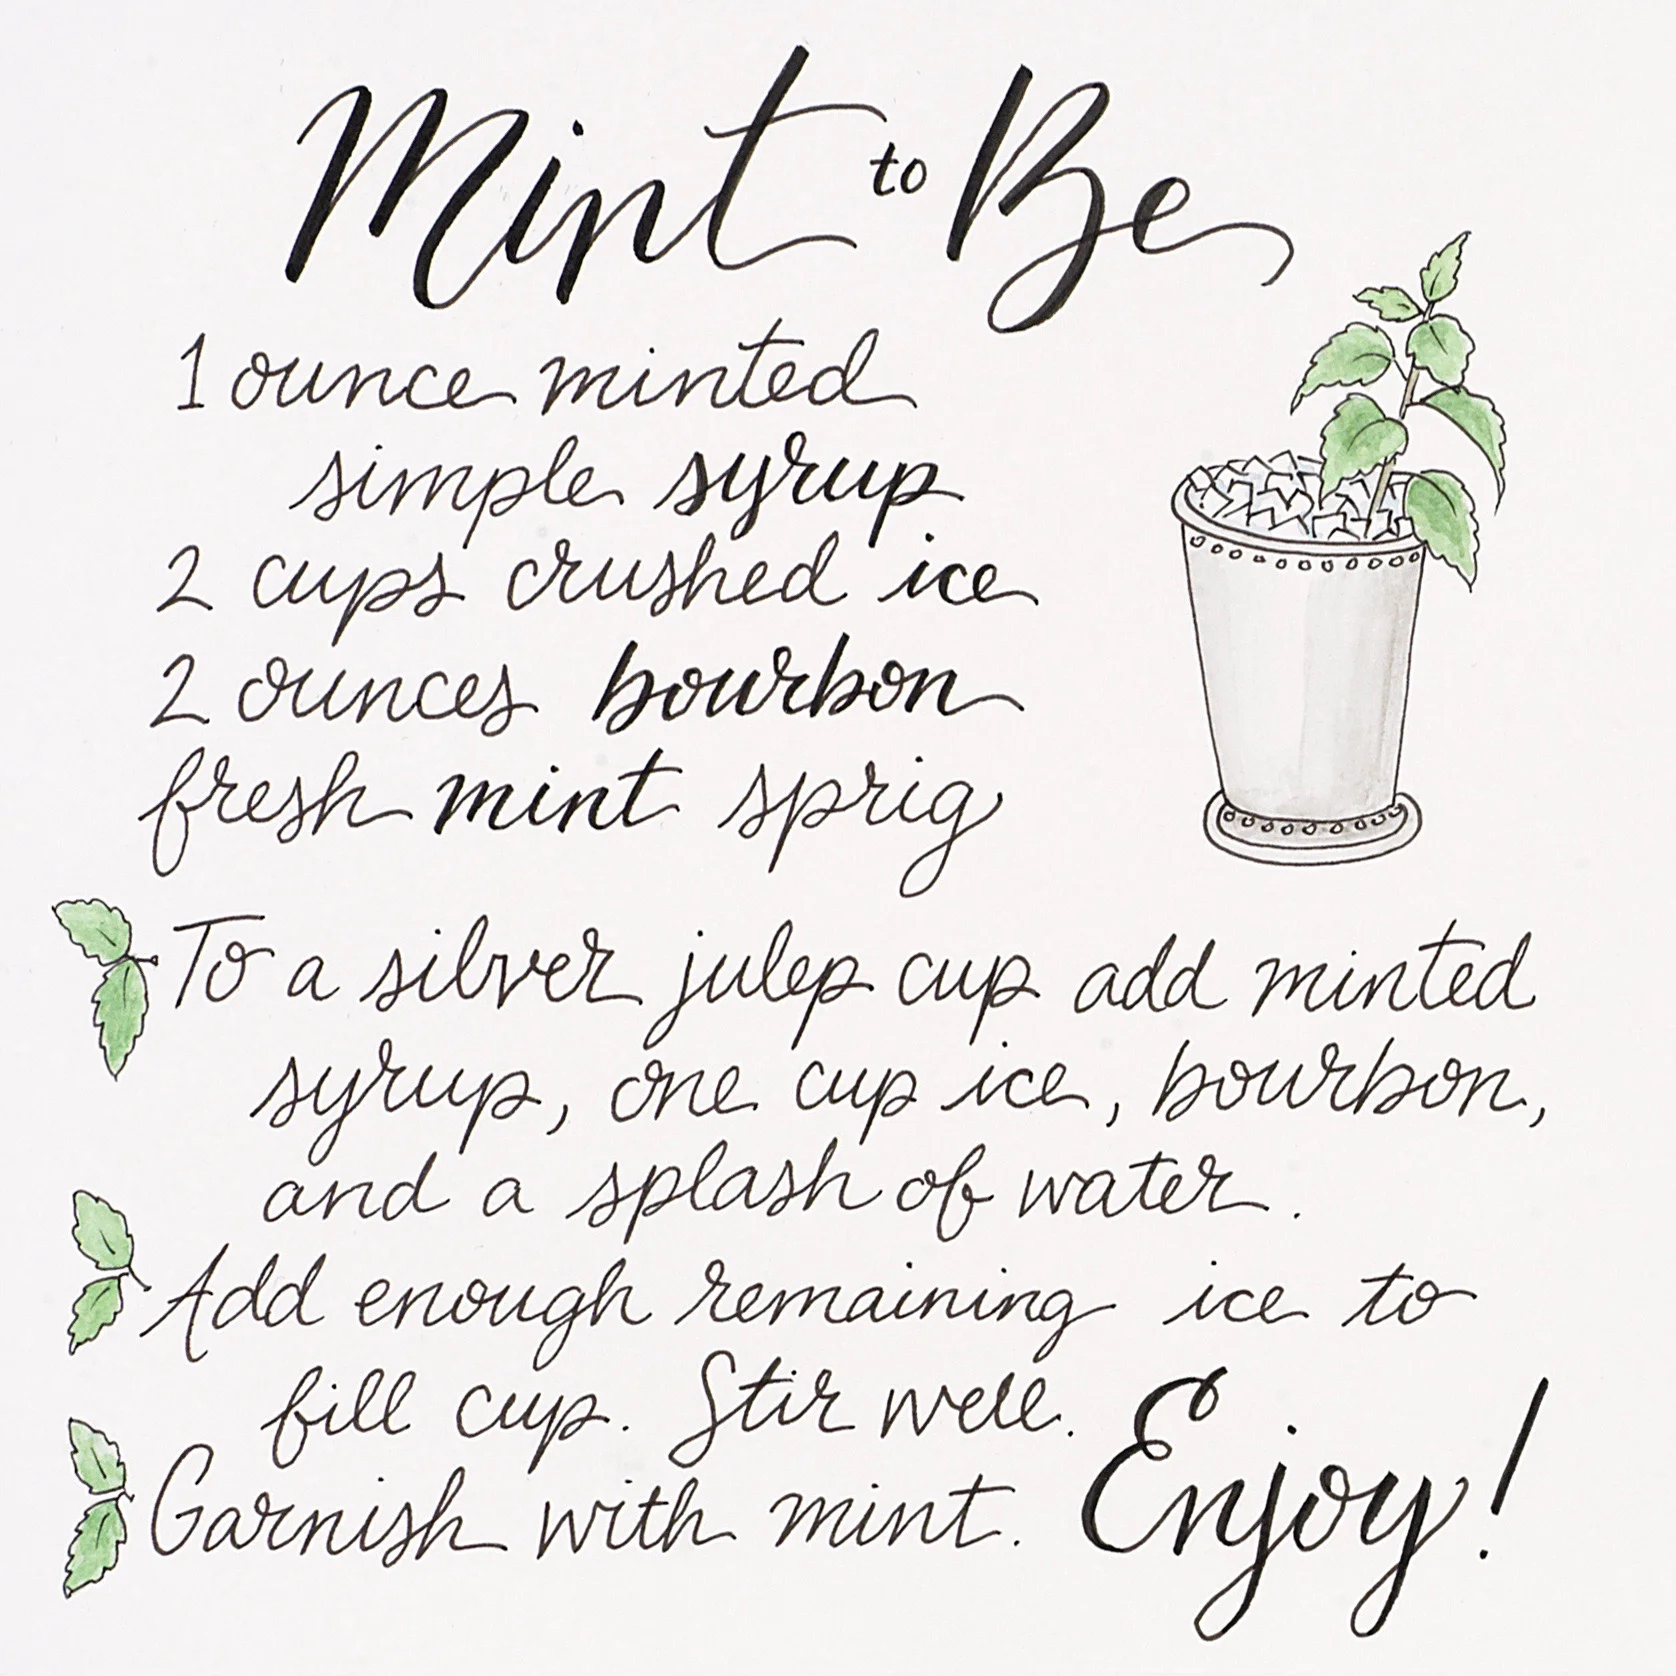 Mint to Be
1 ounce minted
simple syrup
2 cups crushed ice
2 ounces bourbon
fresh mint sprig
To a silver julep cup add minted
syrup, one cup ice, bourbon,
and a splash of water.
Add enough remaining ice to
fill cup. Stir well.
Garnish with mint. Enjoy!